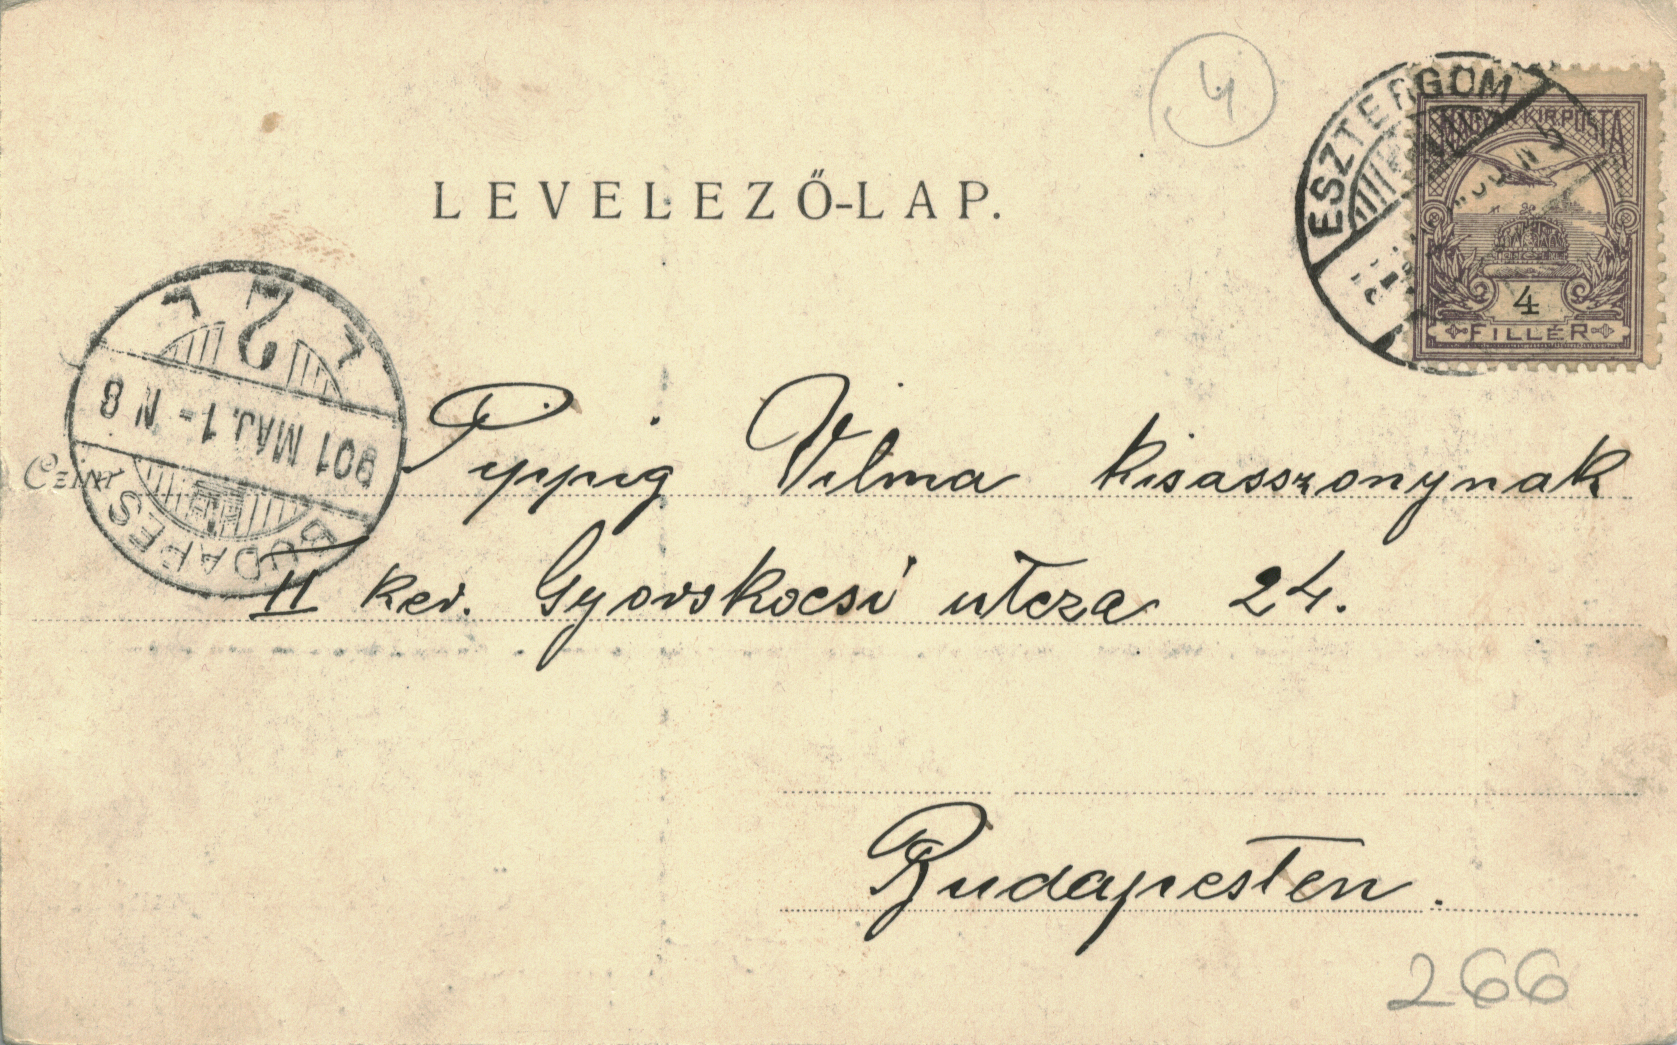 4
ESZTERGOM
MAGYAR KIR. POSTA
4
FILLÉR
LEVELEZŐ-LAP.
2
901 MÁJ. 1 - N 8
BUDAPES
Czím
Pyppig Vilma kisasszonynak
II ker. Gyorskocsi utcza 24.
Budapesten.
266